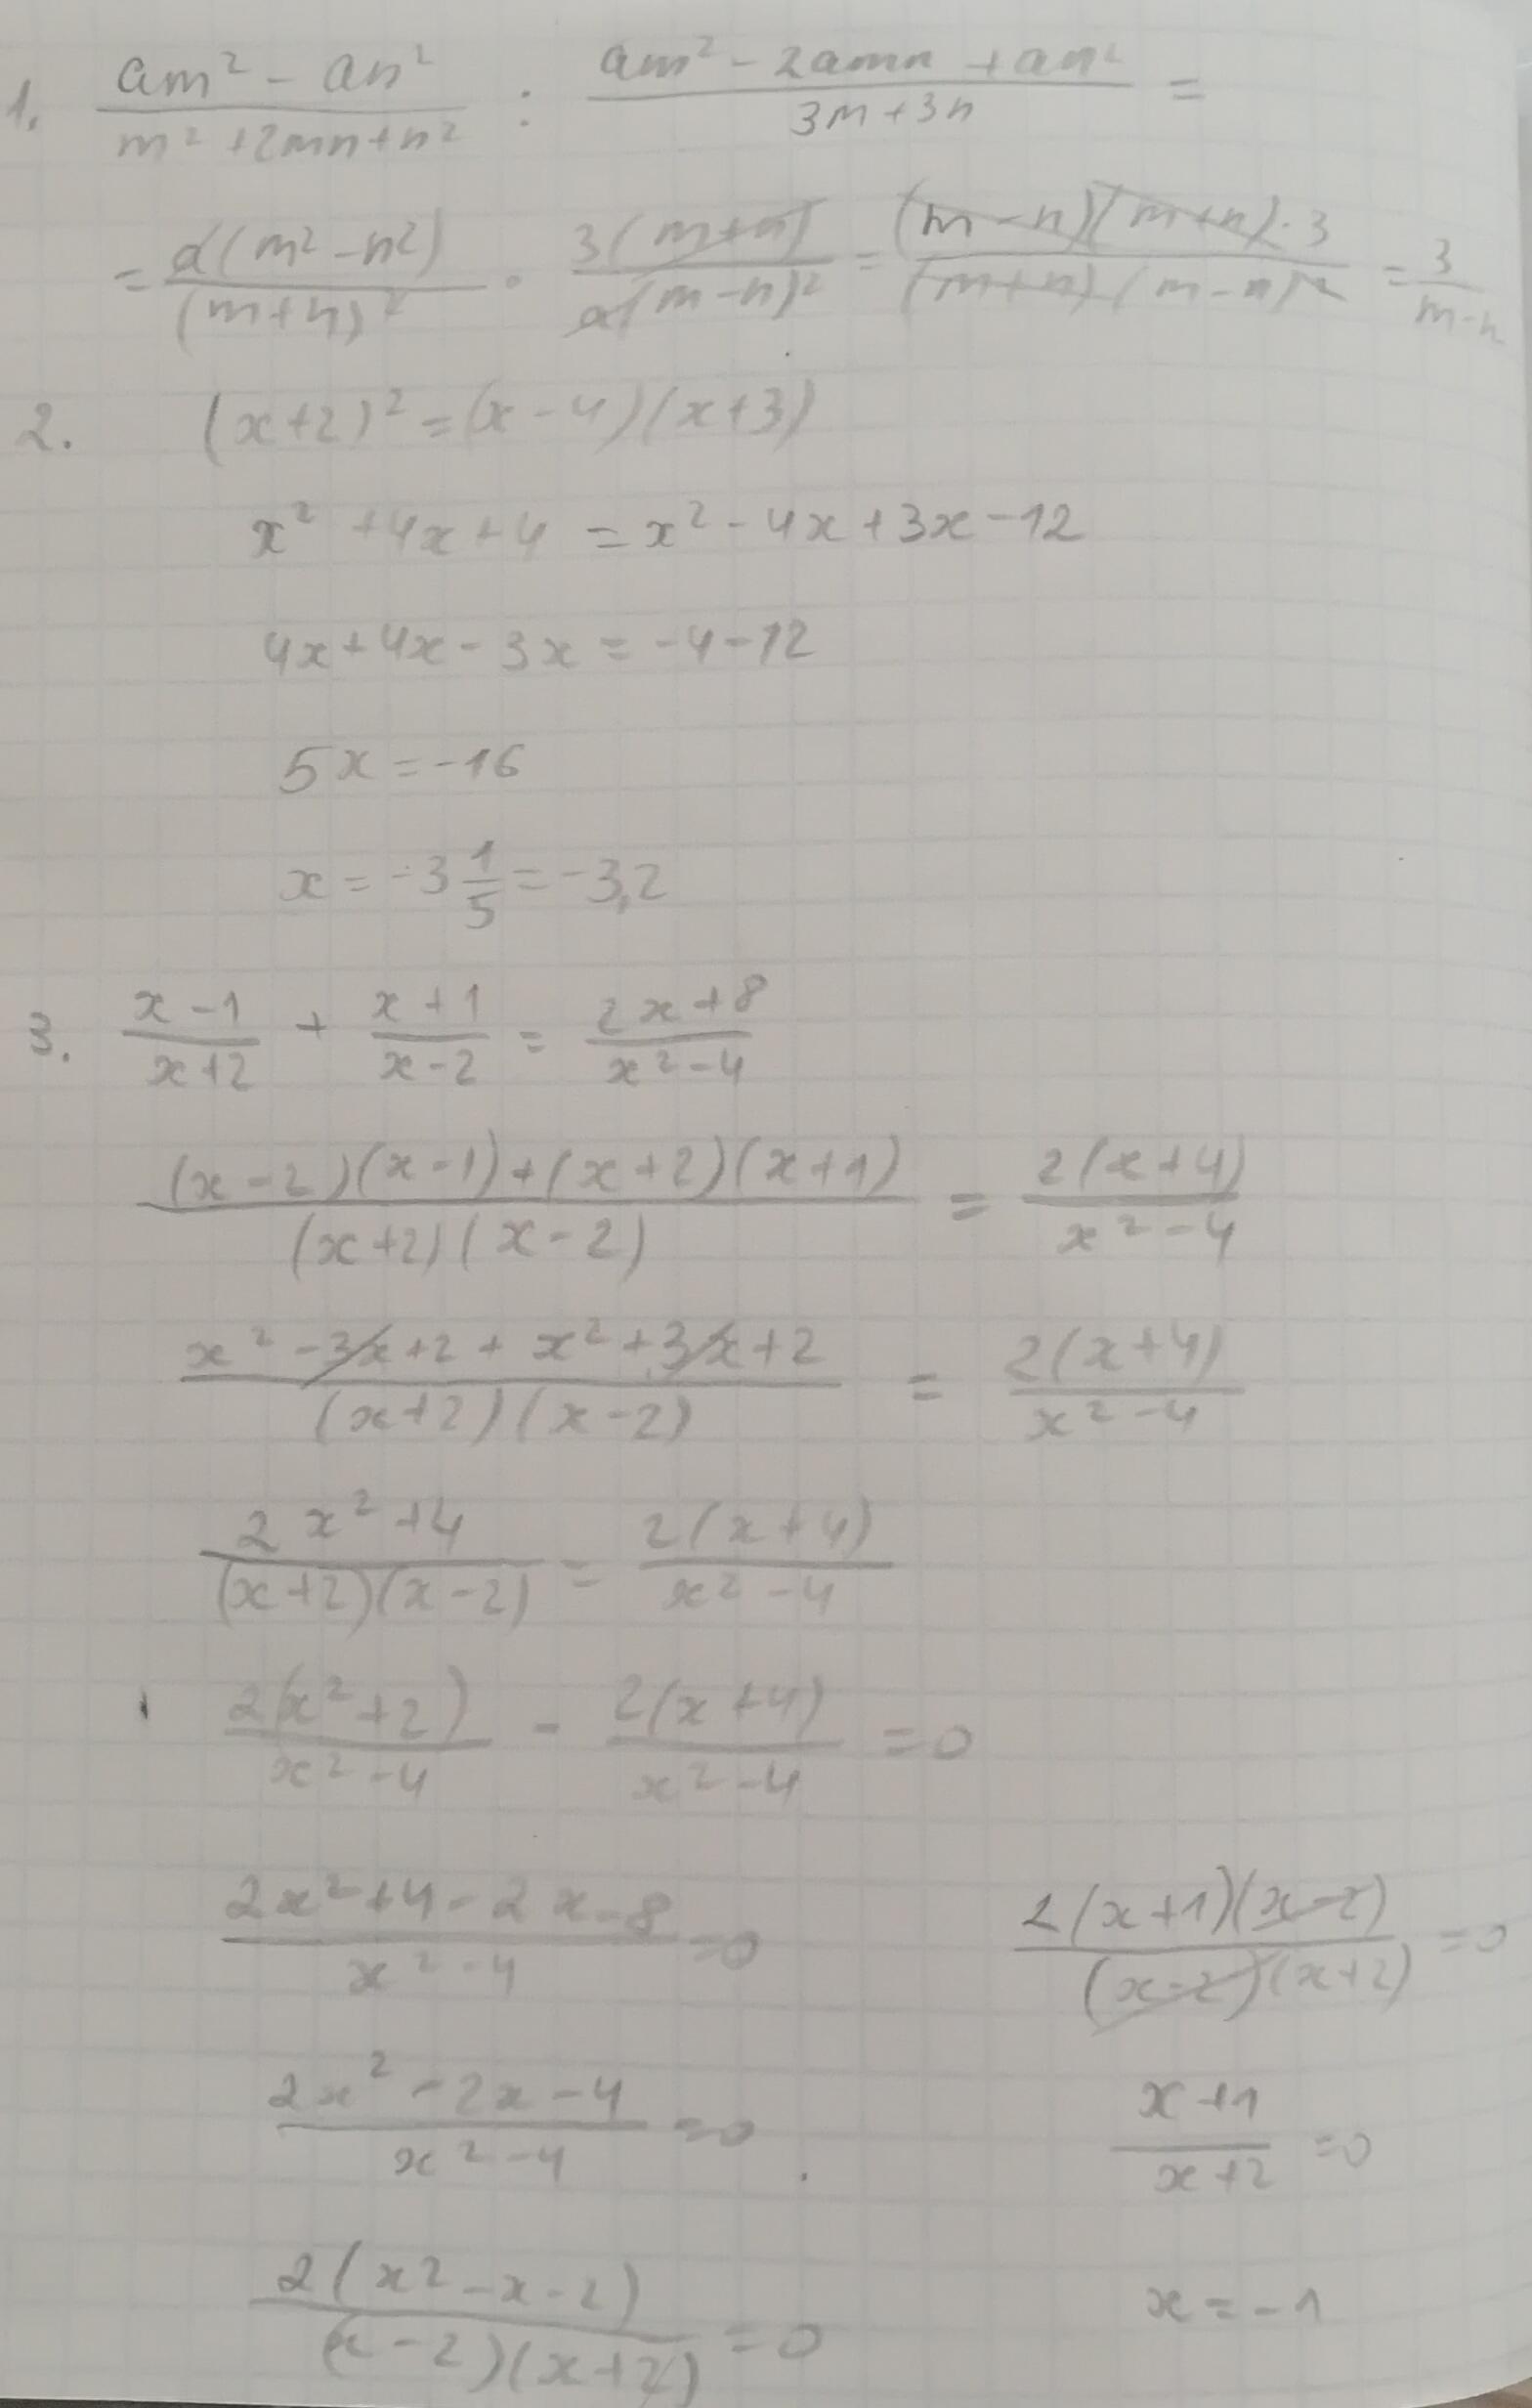 1. (am² - an²)/(m² + 2mn + n²) : (am² - 2amn + an²)/(3m + 3n) =
= a(m² - n²)/(m+n)² · 3(m+n)/a(m-n)² = (m-n)(m+n)·3/(m+n)(m-n)² = 3/(m-n)
2. (x+2)² = (x-4)(x+3)
x² + 4x + 4 = x² - 4x + 3x - 12
4x + 4x - 3x = -4 - 12
5x = -16
x = -3 1/5 = -3,2
3. (x-1)/(x+2) + (x+1)/(x-2) = (2x+8)/(x²-4)
((x-2)(x-1)+(x+2)(x+1))/((x+2)(x-2)) = 2(x+4)/(x²-4)
(x² - 3x + 2 + x² + 3x + 2)/((x+2)(x-2)) = 2(x+4)/(x²-4)
(2x² + 4)/((x+2)(x-2)) = 2(x+4)/(x²-4)
2(x²+2)/(x²-4) - 2(x+4)/(x²-4) = 0
(2x² + 4 - 2x - 8)/(x²-4) = 0
(2x² - 2x - 4)/(x²-4) = 0
2(x² - x - 2)/((x-2)(x+2)) = 0
2(x+1)(x-2)/((x-2)(x+2)) = 0
(x+1)/(x+2) = 0
x = -1